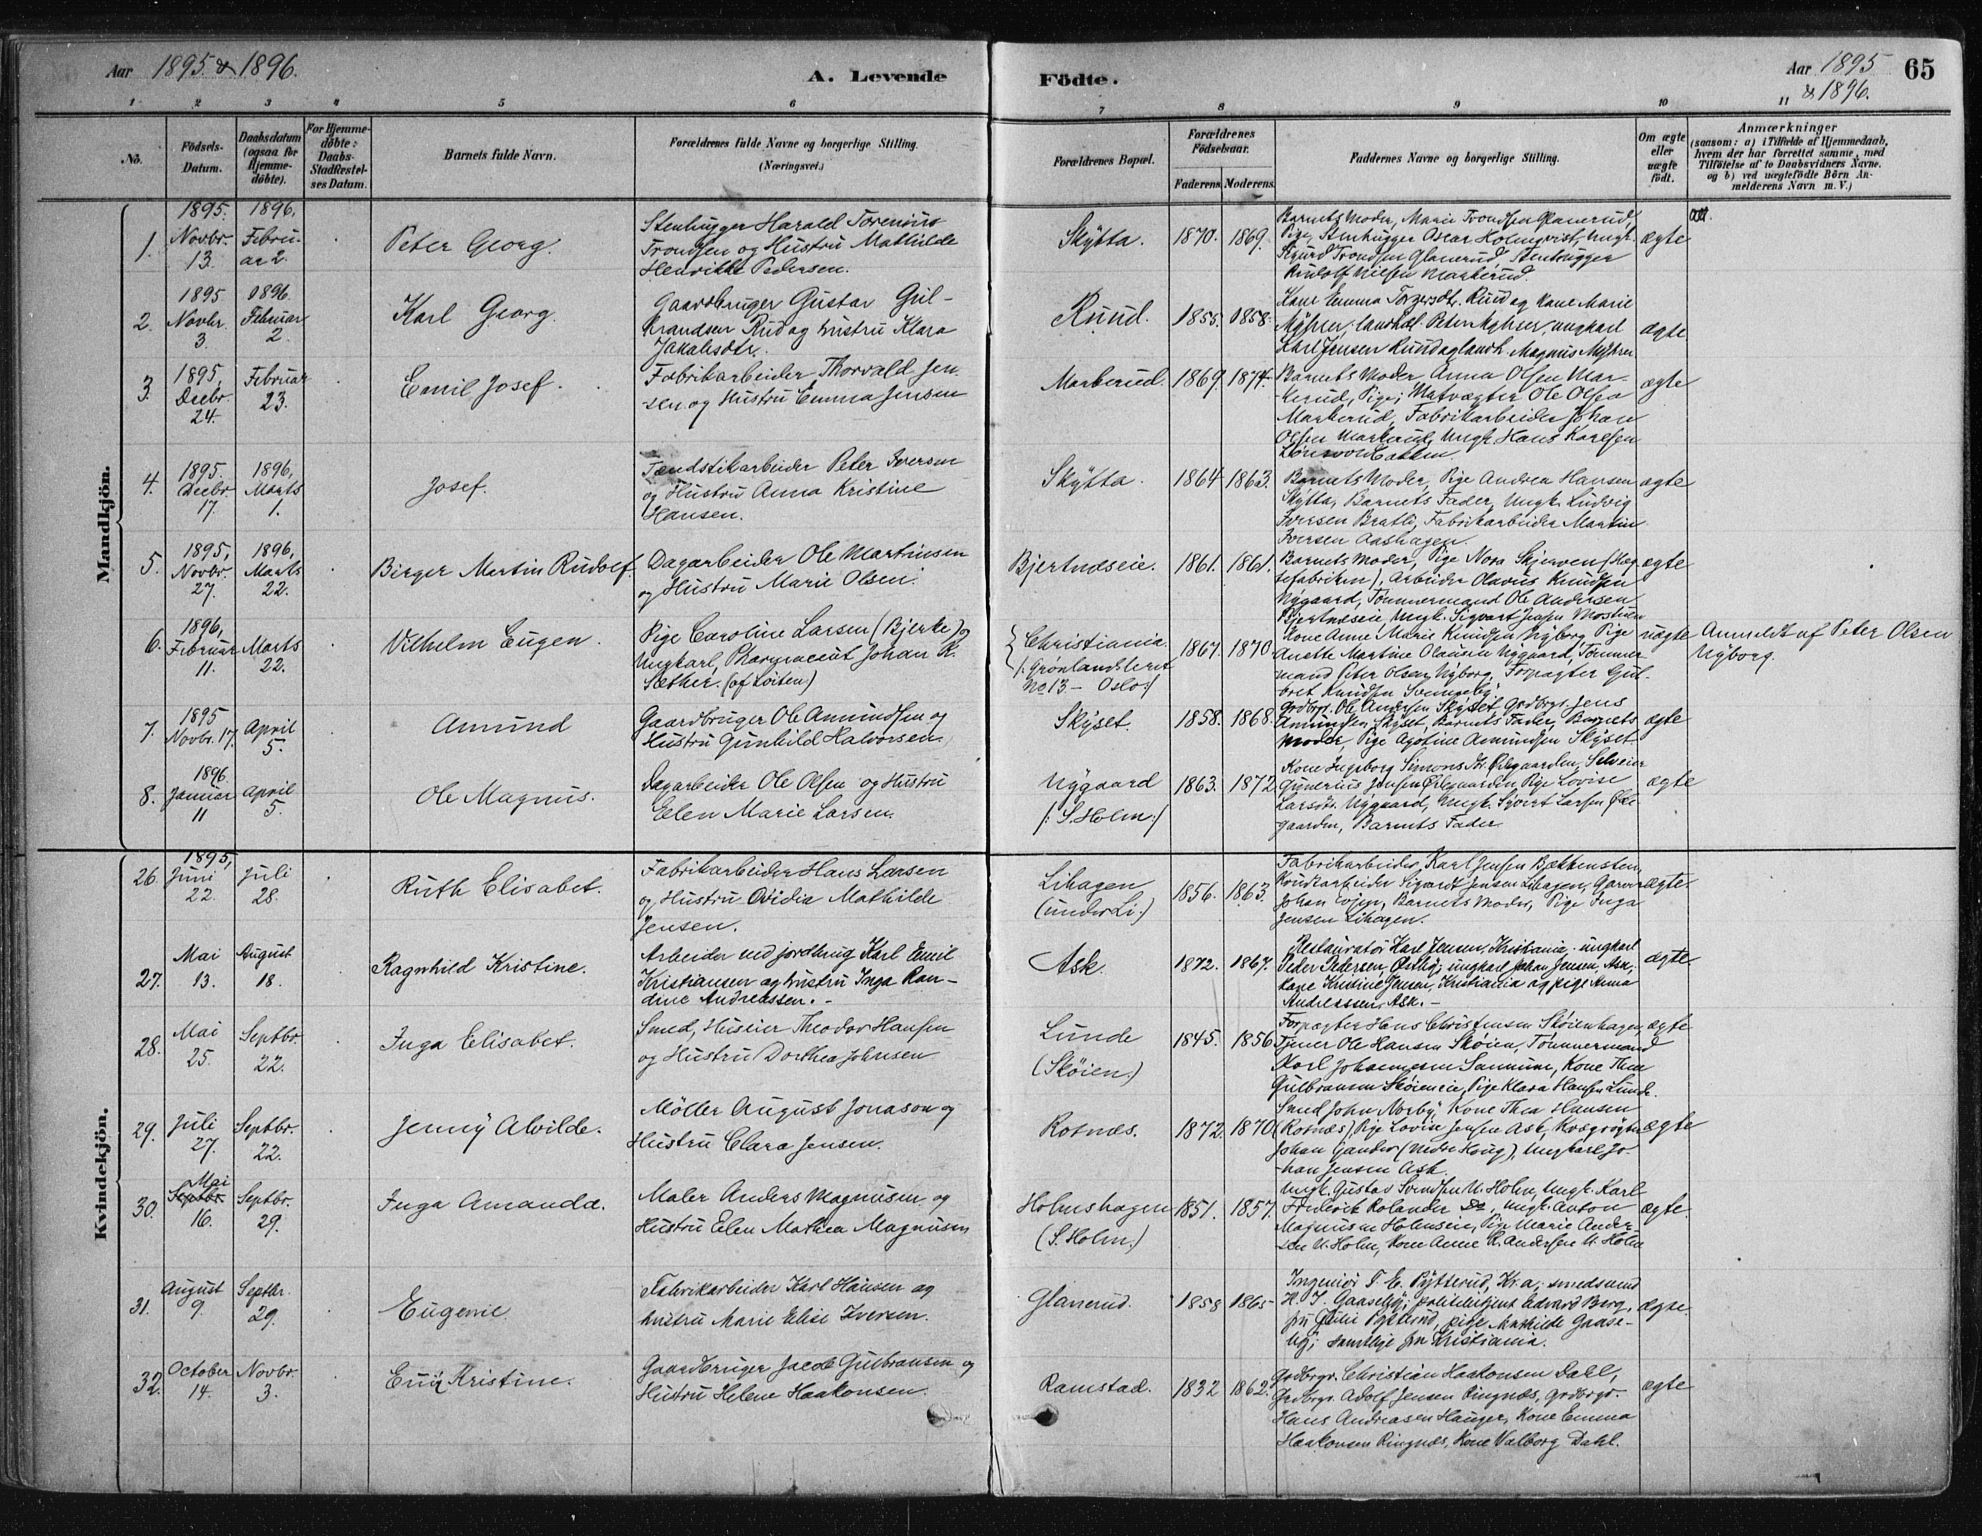 Aar 1895 & 1896.
A. Levende Födte.
Aar 1895 & 1896.
65
1 2 3 4 5 6 7 8 9 10 11
No.
Födsels-Datum.
Daabsdatum (ogsaa for Hjemmedöbte).
For Hjemmedöbte: Daabs-Stadfæstelses Datum.
Barnets fulde Navn.
Forældrenes fulde Navne og borgerlige Stilling.
(Næringsvei.)
Forældrenes Bopæl.
Forældrenes Födselsaar.
Faderens. Moderens.
Faddernes Navne og borgerlige Stilling.
Om ægte eller uægte födt.
Anmærkninger
(saasom: a) i Tilfælde af Hjemmedaab, hvem der har forrettet samme, med Tilföielse af to Daabsvidners Navne. og b) ved uægtefödte Börn Anmelderens Navn m. V.)
Mandkjön.
1. 1895. Novbr. 13. 1896, Februar 2. Peter Georg.
Stenhugger Harald Torenius
Trondsen og Hustru Mathilde
Henrikke Pedersen.
Skÿtta. 1870. 1869.
Barnets Moder, Marie Trondsen Glanerud,
Pige, Stenhugger Oscar Holmqvist, Ungk.
Sigurd Trondsen Glanerud, Stenhugger
Rudolf Nilsen Markerud.
ægte
2. 1895 Novbr. 3. 1896. Februar 2. Karl Georg.
Gaardbruger Gustav Gul-
brandsen Rud og hustru Klara
Jakobsdtr.
Ruud. 1855. 1858.
Kone Emma Torgersdt. Ruud og Kone Marie
Myhrer, landhdl. Peter Myhrer, ungkarl
Karl Jensen Ruud og landh. Magnus Myhrer
ægte
3. 1895, Decbr. 24. Februar 23. Emil Josef.
Fabrikarbeider Thorvald Jen-
sen og Hustru Emma Jensen
Markerud. 1869. 1874.
Barnets Moder Anna Olsen Mar-
kerud, Pige; Matvægter Ole Olsen
Markerud, Fabrikarbeider Johan
Olsen Markerud, Ungk. Hans Karlsen
ægte
4. 1895, Decbr. 17 1896, Marts 1. Josef.
Tændstikarbeider Peter Iversen
og Hustru Anna Kristine
Hansen.
Skÿtta. 1864 1863.
Barnets Moder, Pige Andrea Hansen
Skÿtta, Barnets Fader, Ungk. Ludvig
Iversen Bratli, Fabrikarbeider Martin
Iversen Aashagen.
ægte
5. 1895, Novbr. 27. 1896, Marts 22. Birger Martin Rudolf.
Dagarbeider Ole Martinsen
og Hustru Marie Olsen.
Bjertnæseie. 1861. 1861.
Barnets Moder, Pige Nora Skjerven (Hæg-
tefabriken), Arbeider Olavus Knudsen
Nÿgaard, Tömmermand Ole Andersen
Bjertnæseie, Ungk. Sigvart Jensen Mostuen
ægte
6. 1896, Februar 11. Marts 22. Vilhelm Eugen.
Pige Caroline Larsen (Bjerke) og
Ungkarl, Pharmaceut Johan K.
Sæther. (af Löiten)
Christiania (: Grönlandsleret No 13 - Oslo:) 1867. 1870
Kone Anne Marie Knudsen Nÿborg, Pige
Anette Martine Olausen Nÿgaard, Tömmer-
mand Peter Olsen Nÿborg, Forpagter Gul-
bret Knudsen Svingebÿ.
uægte
Anmeldt af Peter Olsen
Nÿborg.
7. 1895 Novbr. 17. April 5. Amund
Gaardbruger Ole Amundsen og
Hustru Gunhild Halvorsen.
Skÿset. 1858. 1868.
Grdbrgr. Ole Andersen Skÿset, Grdbrgr. Jens
Amundsen Skÿset, Barnets Fader, Barnets
Moder, Pige Agotine Amundsen Skÿset
ægte
8. 1896 Januar 11 April 5. Ole Magnus.
Dagarbeider Ole Olsen og Hustru
Elen Marie Larsen.
Nÿgaard (: S. Holm:) 1863. 1872
Kone Ingeborg Simonsdtr. Ödegaarden, Selveier
Gunerius Jensen Ödegaarden, Pige Lovise
Larsdtr. Nÿgaard, Ungk. Sÿvert Larsen Öde-
gaarden, Barnets Fader.
ægte
Kvindekjön.
26. 1895, Juni 22. Juli 28. Ruth Elisabet.
Fabrikarbeider Hans Larsen
og Hustru Ovidia Mathilde
Jensen.
Lihagen (under Li:) 1856. 1863.
Fabrikarbeider Karl Jensen Bækkensten,
Brukarbeider Sigvardt Jensen Lihagen, Garver
Johan Evjen, Barnets Moder, Pige Inga
Jensen Lihagen.
ægte.
27. Mai 13. August 18. Ragnhild Kristine.
Arbeider ved jordbrug Karl Emil
Kristiansen og hustru Inga Ran-
dine Andreassen. -
Ask. 1872. 1867.
Restauratör Karl Jensen, Kristiania. ungkarl
Peder Pedersen, Östby; ungkarl Johan Jensen, Ask,
Kone Kristine Jensen, Kristiania og pige Anna
Andreassen, Ask. -
ægte.
28. Mai 25. Septbr. 22. Inga Elisabet.
Smed, Huseier Theodor Hansen
og Hustru Dorthea Johnsen
Lunde (Skøien.) 1845. 1856
Forpagter Hans Christensen Skøienhagen,
Tjener Ole Hansen Skøien, Tömmermand
Karl Johannesen Sannum, Kone Thea
Gulbransen Skøieneie, Pige Klara Hansen Lunde.
ægte
29. Juli 27. Septbr. 22. Jenny Alvilde.
Möller August Jonason og
Hustru Clara Jensen.
Rotnæs. 1872. 1870
Smed John Norbÿ, Kone Thea Hansen
(Rotnæs), Pige Lovise Jensen Ask, Kvægrögter
Johan Gander (Nedre Haug), Ungkarl Jo-
han Jensen Ask.
ægte
30. Septbr. Mai 16. Septbr. 29. Inga Amanda.
Maler Anders Magnusen og
Hustru Elen Mathea Magnusen
Holmshagen (S. Holm.) 1851. 1857.
Ungk. Gustav Svendsen N. Holm, Ungk. Karl
Frederik Rolander Do, Ungk. Anton
Magnusen Holmseie, Pige Marie Ander-
sen N. Holm, Kone Anne K. Andersen N. Holm
ægte.
31. August 9. Septbr. 29. Eugenie
Fabrikarbeider Karl Hansen og
hustru Marie Elise Iversen.
Glanerud. 1858 1865
Ingeniör T. E. Pÿtterud, Kr.a; smedsvend
H. J. Gaasebÿ; politibetjent Edvard Berg,
fru Julie Pytterud, pige Mathilde Gaase-
bÿ; samtlige fra Kristiania.
ægte.
32. October 14. Novbr. 3. Enny Kristine.
Gaardbruger Jacob Gulbransen og
Hustru Helene Haakonsen.
Ramstad. 1832 1862.
Grdbrgr. Christian Haakonsen Dahl,
Grdbrgr. Adolf Jensen Ringnæs, Grdbrgr.
Hans Andreasen Hauger, Kone Emma
Haakonsen Ringnæs, Kone Valborg Dahl.
ægte